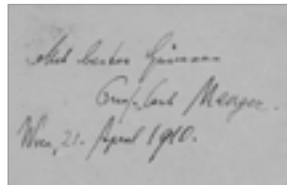 Mit besten Grüssen
Prof. Carl Menger.
Wien, 21. April 1910.